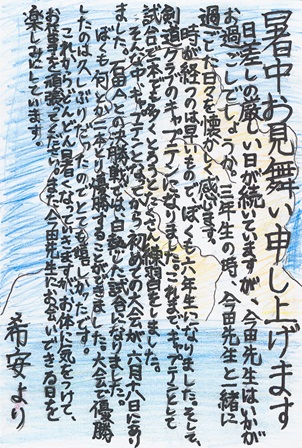 暑中お見舞い申し上げます
日差しの厳しい日が続いていますが、今田先生はいかが
お過ごしでしょうか。三年生の時、今田先生と一緒に
過ごした日々を懐かしく感じます。
時が経つのは早いもので、ぼくも六年生になりました。そして、
剣道クラブのキャプテンになりました。これまで、キャプテンとして
試合で一本でも多くとろうとたくさん練習をしました。
そんな中、キャプテンとなってから初めての大会が六月十八日にあり
ました。石田くんとの決勝戦では、白熱した試合になりました。
ぼくも何とか一本とり優勝することができました。大会で優勝
したのは久しぶりだったのでとても嬉しかったです。
これからどんどん暑くなっていきますが、お体に気をつけて、
お仕事を頑張ってください。また今田先生にお会いできる日を
楽しみにしています。
希安より